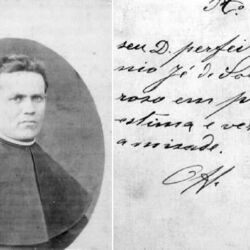 Ao
seu D. perfei
nio Jé de So
roso em p
estima e ve
amisade.